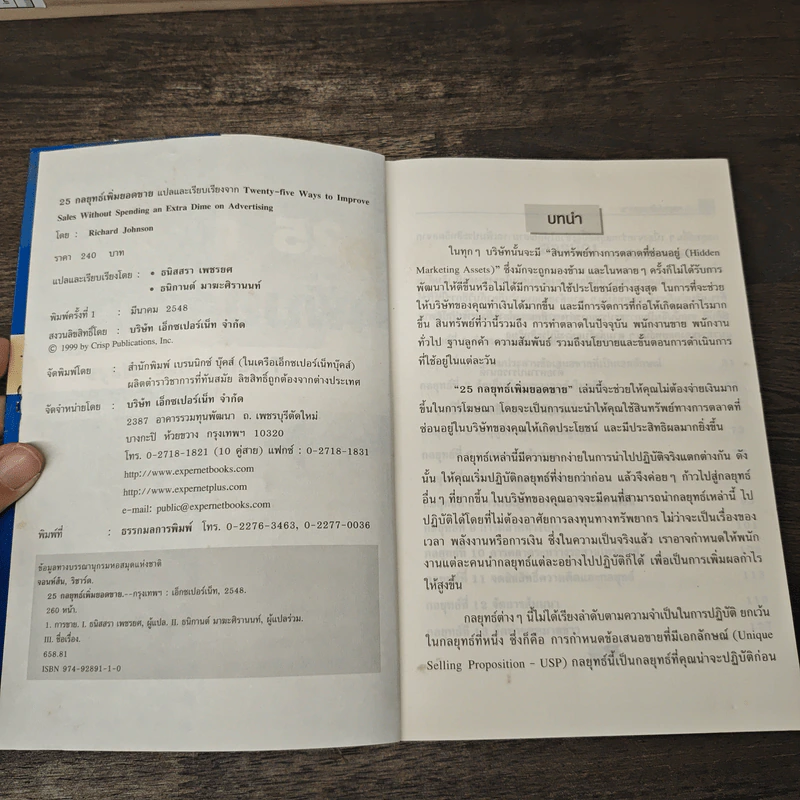 25 กลยุทธ์เพิ่มยอดขาย แปลและเรียบเรียงจาก Twenty-five Ways to Improve
Sales Without Spending an Extra Dime on Advertising
โดย : Richard Johnson
ราคา 240 บาท
แปลและเรียบเรียงโดย : • ธนิสสรา เพชรยศ
• ธนิกานต์ มาฆะศิรานนท์
พิมพ์ครั้งที่ 1 : มีนาคม 2548
สงวนลิขสิทธิ์โดย : บริษัท เอ็กซเปอร์เน็ท จำกัด
© 1999 by Crisp Publications, Inc.
จัดพิมพ์โดย : สำนักพิมพ์ เบรนนิกซ์ บุ๊คส์ (ในเครือเอ็กซเปอร์เน็ทบุ๊คส์)
ผลิตตำราวิชาการที่ทันสมัย ลิขสิทธิ์ถูกต้องจากต่างประเทศ
จัดจำหน่ายโดย : บริษัท เอ็กซเปอร์เน็ท จำกัด
2387 อาคารรวมทุนพัฒนา ถ. เพชรบุรีตัดใหม่
บางกะปิ ห้วยขวาง กรุงเทพฯ 10320
โทร. 0-2718-1821 (10 คู่สาย) แฟกซ์ : 0-2718-1831
http://www.expernetbooks.com
http://www.expernetplus.com
e-mail: public@expernetbooks.com
พิมพ์ที่ : ธรรกมลการพิมพ์ โทร. 0-2276-3463, 0-2277-0036
ข้อมูลทางบรรณานุกรมหอสมุดแห่งชาติ
จอนห์สัน, ริชาร์ด.
25 กลยุทธ์เพิ่มยอดขาย.--กรุงเทพฯ : เอ็กซเปอร์เน็ท, 2548.
260 หน้า.
1. การขาย. I. ธนิสสรา เพชรยศ, ผู้แปล. II. ธนิกานต์ มาฆะศิรานนท์, ผู้แปลร่วม.
III. ชื่อเรื่อง.
658.81
ISBN 974-92891-1-0
บทนำ
ในทุกๆ บริษัทนั้นจะมี "สินทรัพย์ทางการตลาดที่ซ่อนอยู่ (Hidden
Marketing Assets)" ซึ่งมักจะถูกมองข้าม และในหลายๆ ครั้งก็ไม่ได้รับการ
พัฒนาให้ดีขึ้นหรือไม่ได้มีการนำมาใช้ประโยชน์อย่างสูงสุด ในการที่จะช่วย
ให้บริษัทของคุณทำเงินได้มากขึ้น และมีการจัดการที่ก่อให้เกิดผลกำไรมาก
ขึ้น สินทรัพย์ที่ว่านี้รวมถึง การทำตลาดในปัจจุบัน พนักงานขาย พนักงาน
ทั่วไป ฐานลูกค้า ความสัมพันธ์ รวมถึงนโยบายและขั้นตอนการดำเนินการ
ที่ใช้อยู่ในแต่ละวัน
"25 กลยุทธ์เพิ่มยอดขาย" เล่มนี้จะช่วยให้คุณไม่ต้องจ่ายเงินมาก
ขึ้นในการโฆษณา โดยจะเป็นการแนะนำให้คุณใช้สินทรัพย์ทางการตลาดที่
ซ่อนอยู่ในบริษัทของคุณให้เกิดประโยชน์ และมีประสิทธิผลมากยิ่งขึ้น
กลยุทธ์เหล่านี้มีความยากง่ายในการนำไปปฏิบัติจริงแตกต่างกัน ดัง
นั้น ให้คุณเริ่มปฏิบัติกลยุทธ์ที่ง่ายกว่าก่อน แล้วจึงค่อยๆ ก้าวไปสู่กลยุทธ์
อื่นๆ ที่ยากขึ้น ในบริษัทของคุณอาจจะมีคนที่สามารถนำกลยุทธ์เหล่านี้ ไป
ปฏิบัติได้โดยที่ไม่ต้องอาศัยการลงทุนทางทรัพยากร ไม่ว่าจะเป็นเรื่องของ
เวลา พลังงานหรือการเงิน ซึ่งในความเป็นจริงแล้ว เราอาจกำหนดให้พนัก
งานแต่ละคนนำกลยุทธ์แต่ละอย่างไปปฏิบัติก็ได้ เพื่อเป็นการเพิ่มผลกำไร
ให้สูงขึ้น
กลยุทธ์ต่างๆ นี้ไม่ได้เรียงลำดับตามความจำเป็นในการปฏิบัติ ยกเว้น
ในกลยุทธ์ที่หนึ่ง ซึ่งก็คือ การกำหนดข้อเสนอขายที่มีเอกลักษณ์ (Unique
Selling Proposition - USP) กลยุทธ์นี้เป็นกลยุทธ์ที่คุณน่าจะปฏิบัติก่อน